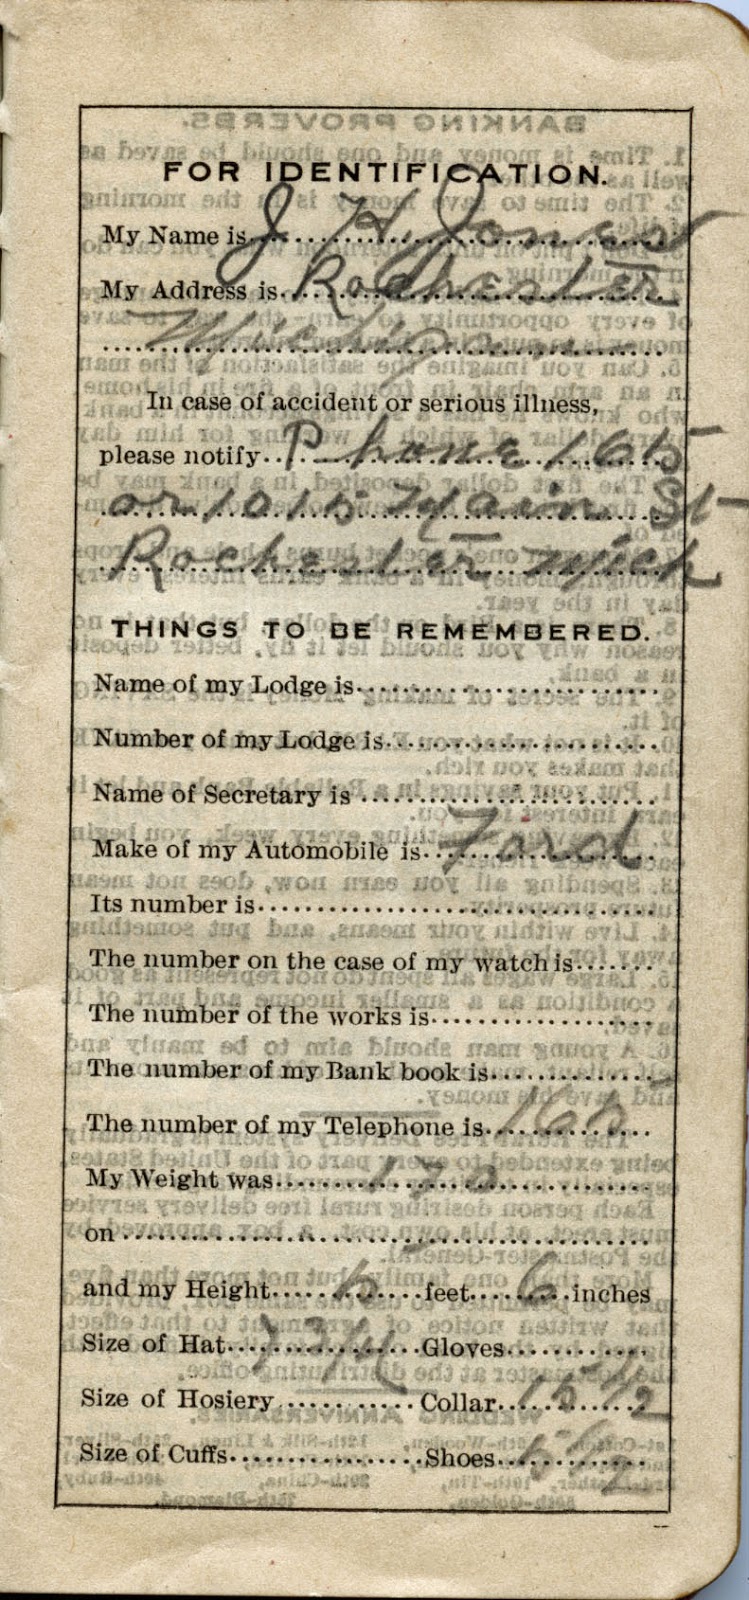 FOR IDENTIFICATION.
My Name is J. H. Jones
My Address is Rochester
Michigan
In case of accident or serious illness,
please notify Phone 165
or 1015 Main St
Rochester Mich
THINGS TO BE REMEMBERED.
Name of my Lodge is
Number of my Lodge is
Name of Secretary is
Make of my Automobile is Ford
Its number is
The number on the case of my watch is
The number of the works is
The number of my Bank book is
The number of my Telephone is 165
My Weight was 170
on
and my Height 5 feet 6 inches
Size of Hat 7 3/4 Gloves
Size of Hosiery Collar 15 1/2
Size of Cuffs Shoes